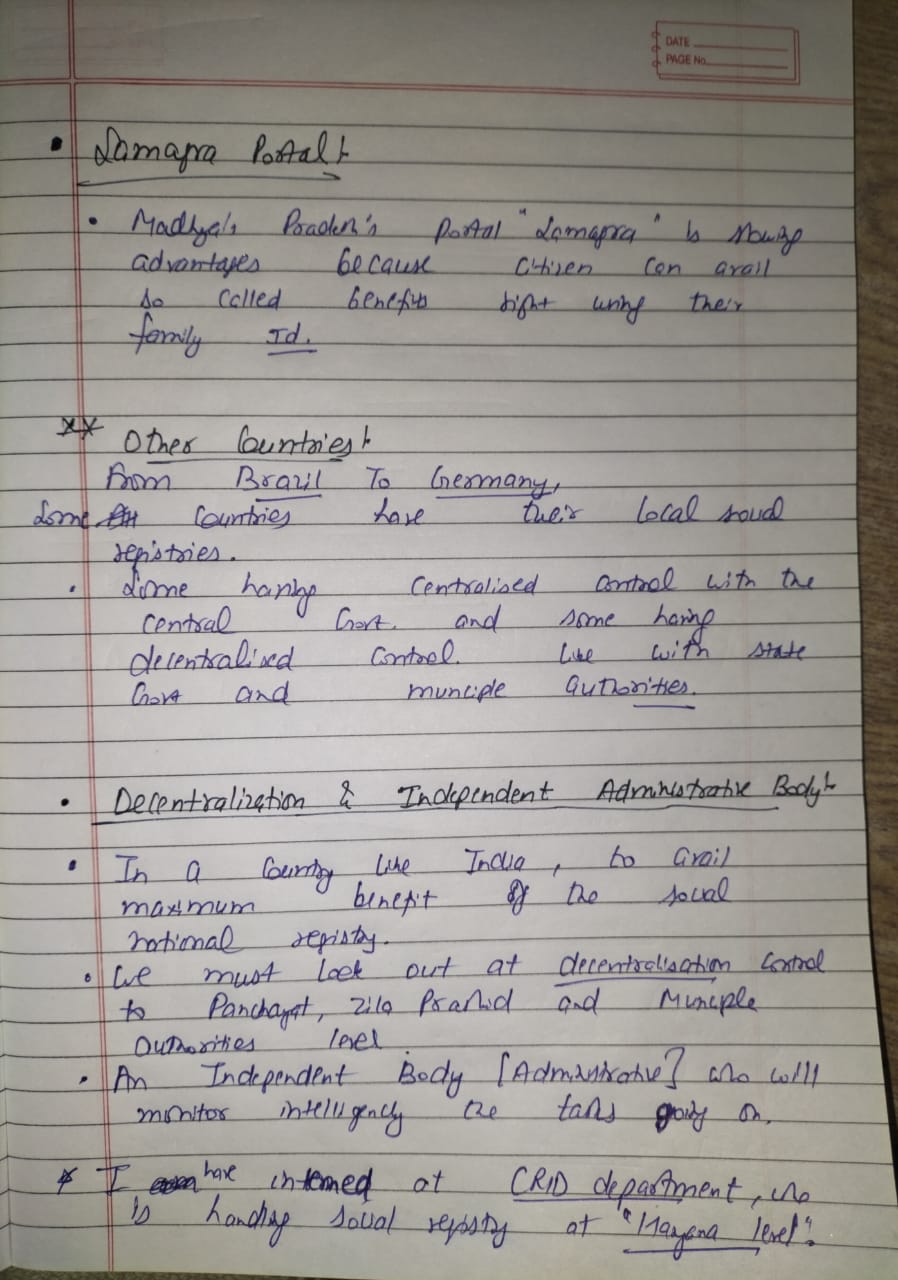 DATE
PAGE No.
• Samagra Portal :-
• Madhya's Pradesh's portal "Samagra" is showing
advantages because citizen can avail
so called benefits right using their
family Id.
** Other Countries :-
From Brazil To Germany,
Some countries have their local social
registries.
• Some having centralised control with the
central Govt. and some having
decentralised control. like with state
Govt and munciple authorities.
• Decentralization & Independent Administrative Body :-
• In a country like India, to avail
maximum benefit of the social
national registry.
• We must look out at decentralisation control
to Panchayat, Zila Prashid and Munciple
authorities level.
• An Independent Body [Administrative] who will
monitor intelligency the tasks going on.
* I have interned at CRID department, who
is handling social registry at "Haryana level".